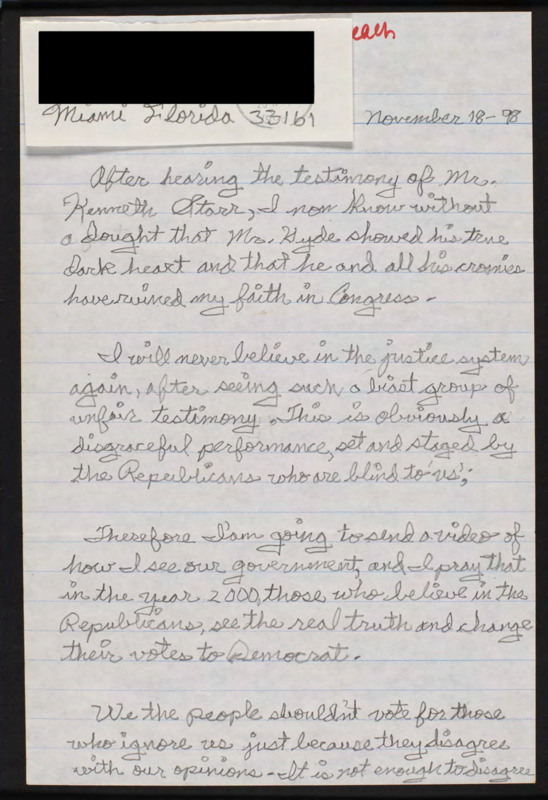 each
Miami Florida 33161
November 18-98
After hearing the testimony of Mr.
Kenneth Starr, I now know without
a dought that Mr. Hyde showed his true
dark heart and that he and all his cronies
have ruined my faith in Congress.
I will never believe in the justice system
again, after seeing such a biast group of
unfair testimony. This is obviously a
disgraceful performance, set and staged by
the Republicans who are blind to 'us',
Therefore I'am going to send a video of
how I see our government, and I pray that
in the year 2000, those who believe in the
Republicans, see the real truth and change
their votes to Democrat.
We the people shouldn't vote for those
who ignore us just because they disagree
with our opinions. It is not enough to disagree